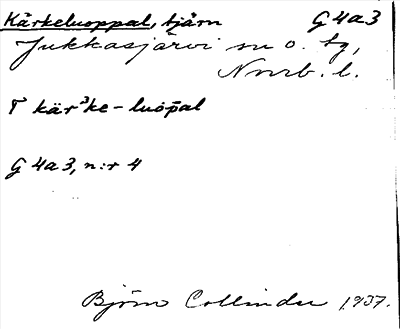 Kärkeluoppal, tjärn G4a3
Jukkasjärvi sn o. tg,
Nnrb. l.
T kär³ke-luōpal
G4a3, n:r 4
Björn Collinder 1937.